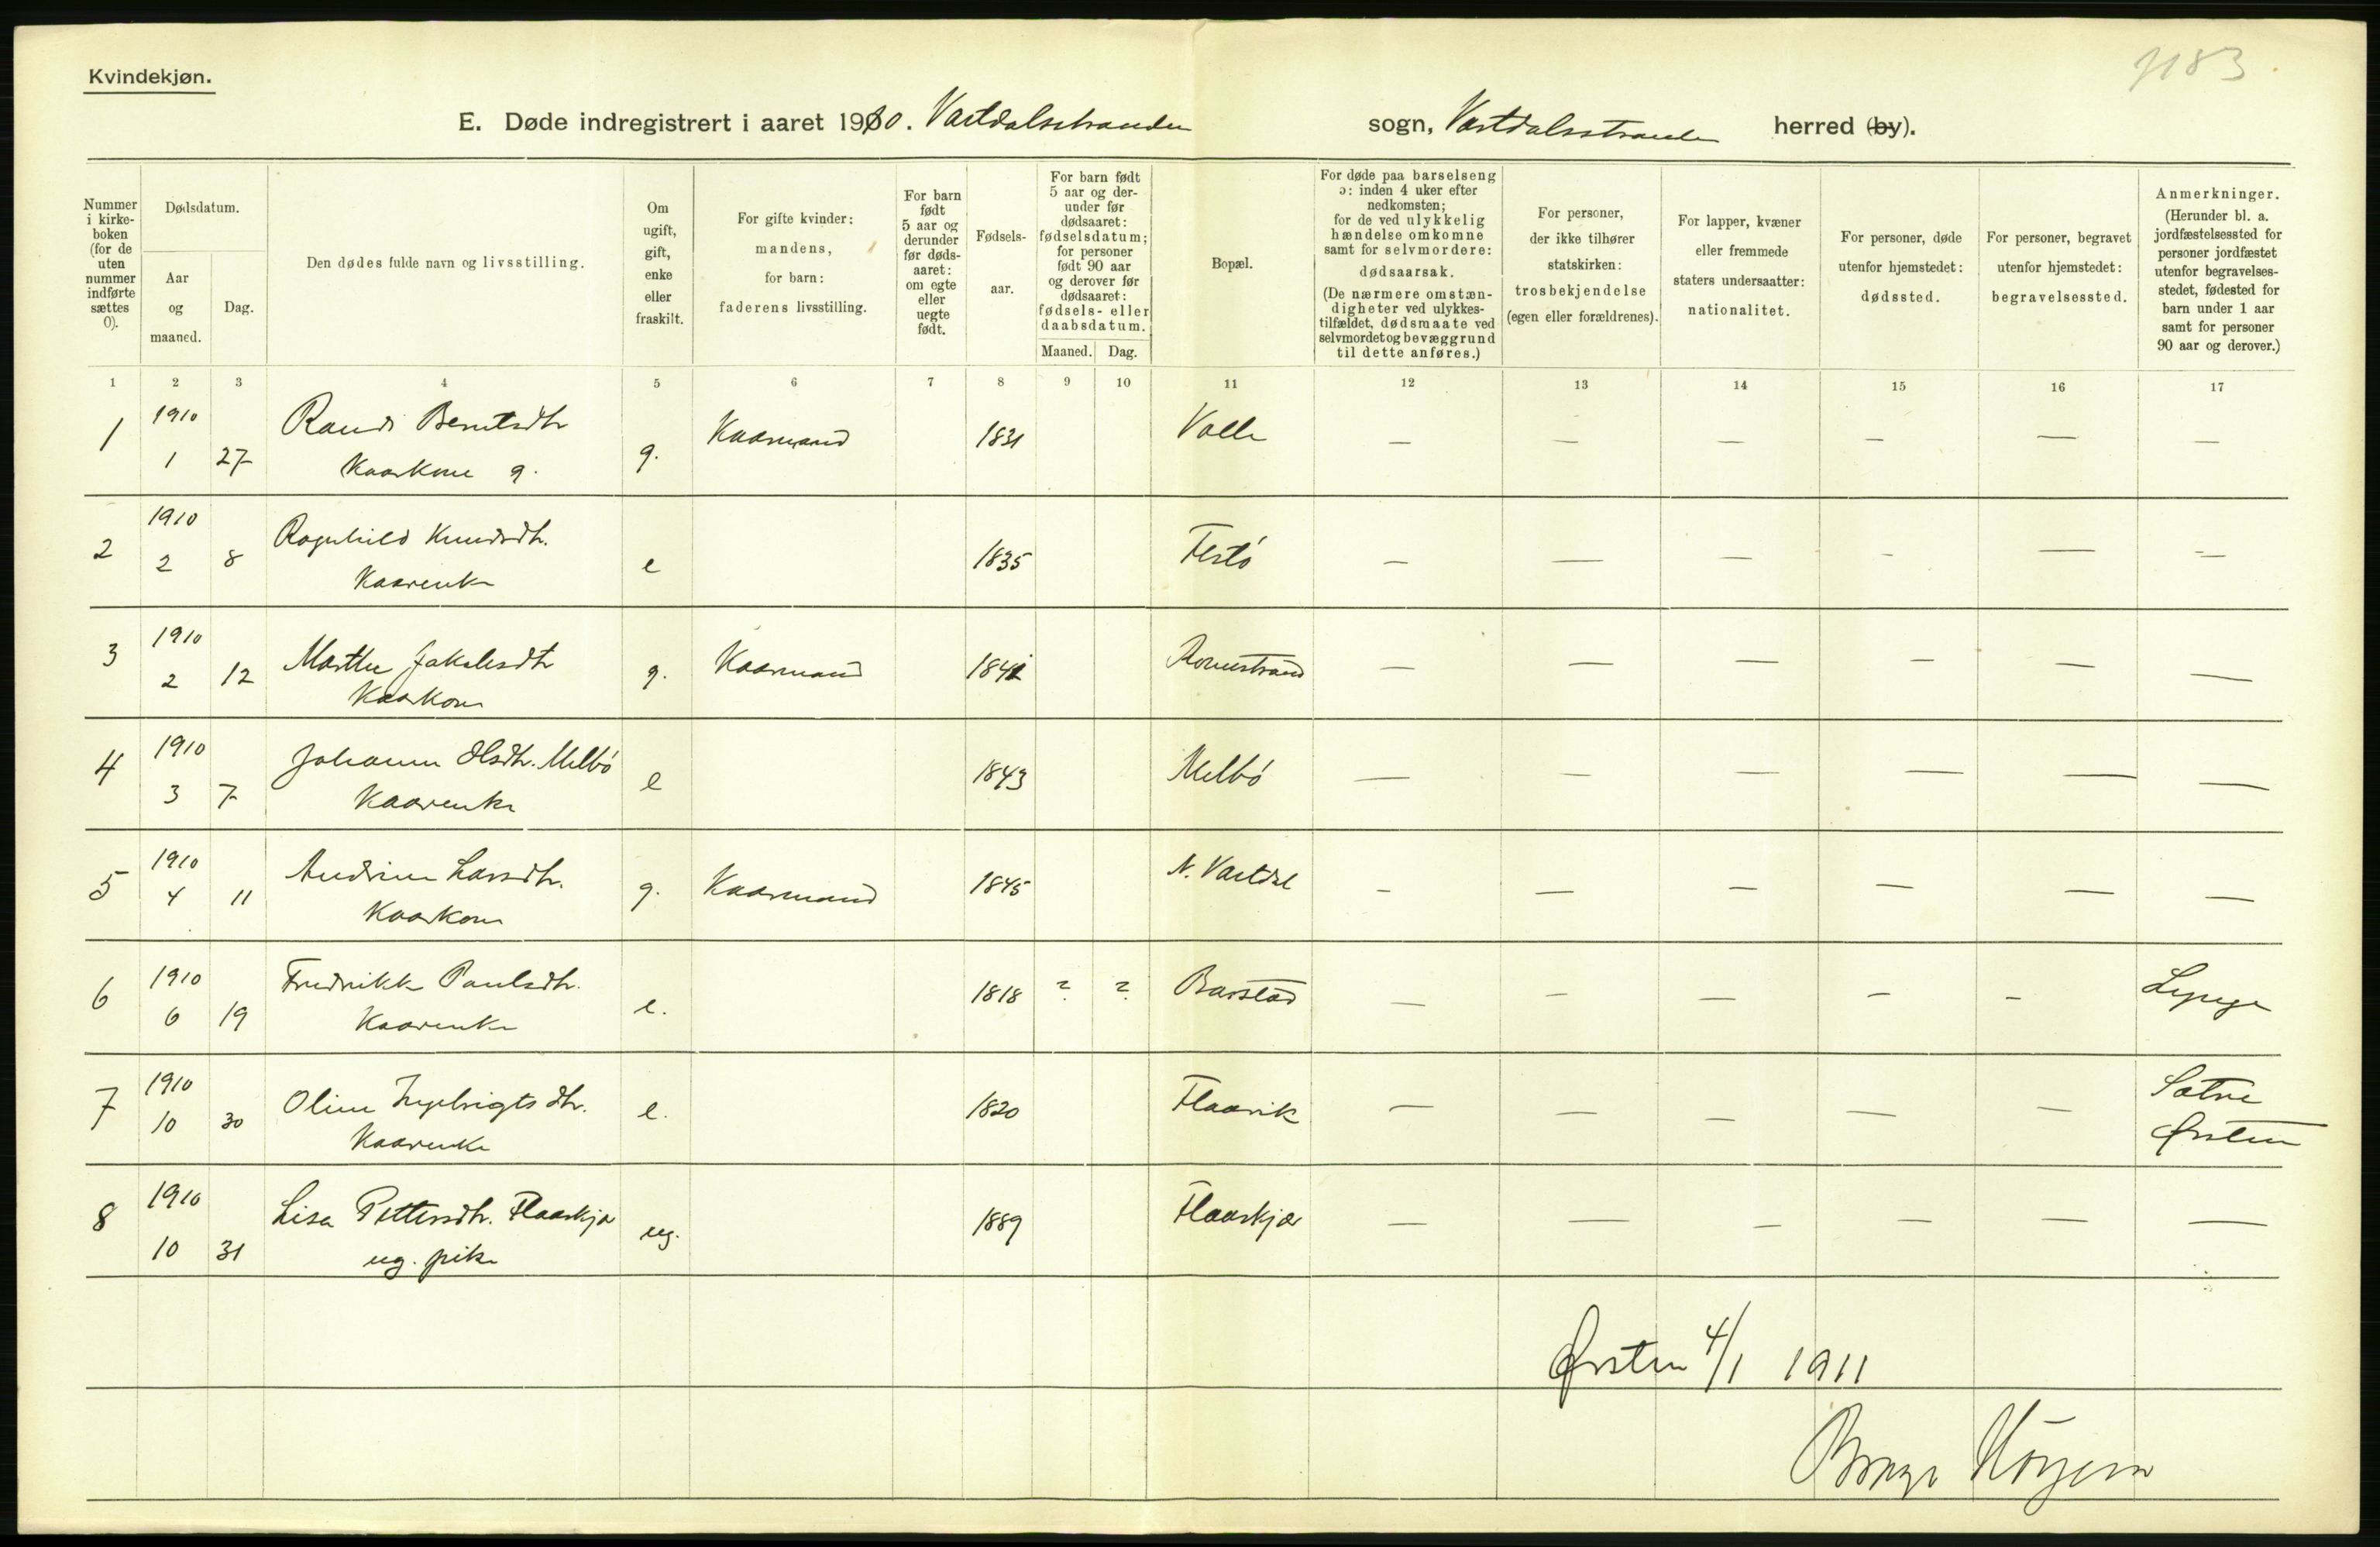 1183
Kvindekjøn.
E. Døde indregistrert i aaret 1910. Vartdalsstranden sogn, Vartdalsstranden herred (by).
Nummer i kirkeboken (for de uten nummer indførte sættes 0).
Dødsdatum.
Aar og maaned.
Dag.
Den dødes fulde navn og livsstilling.
Om ugift, gift, enke eller fraskilt.
For gifte kvinder: mandens, for barn: faderens livsstilling.
For barn født 5 aar og derunder før dødsaaret: om egte eller uegte født.
Fødselsaar.
For barn født 5 aar og derunder før dødsaaret: fødselsdatum; for personer født 90 aar og derover før dødsaaret: fødsels- eller daabsdatum.
Maaned. Dag.
Bopæl.
For døde paa barselseng ɔ: inden 4 uker efter nedkomsten; for de ved ulykkelig hændelse omkomne samt for selvmordere: dødsaarsak. (De nærmere omstændigheter ved ulykkestilfældet, dødsmaate ved selvmordet og bevæggrund til dette anføres.)
For personer, der ikke tilhører statskirken: trosbekjendelse (egen eller forældrenes).
For lapper, kvæner eller fremmede staters undersaatter: nationalitet.
For personer, døde utenfor hjemstedet: dødssted.
For personer, begravet utenfor hjemstedet: begravelsessted.
Anmerkninger. (Herunder bl. a. jordfæstelsessted for personer jordfæstet utenfor begravelsesstedet, fødested for barn under 1 aar samt for personer 90 aar og derover.)
1 2 3 4 5 6 7 8 9 10 11 12 13 14 15 16 17
1 1910 1 27 Randi Berntsdtr Kaarkone g. g. Kaarmand 1831 Valle — — — — — —
2 1910 2 8 Ragnhild Knudsdtr. Kaarenke e 1835 Festö — — — — — —
3 1910 2 12 Marthe Jakobsdtr Kaarkone g. Kaarmand Rovustrand — — — — — —
4 1910 3 7 Johanne Olsdtr. Melbö Kaarenke e 1843 Melbö — — — — — —
5 1910 4 11 Andrine Larsdtr. Kaarkone g. Kaarmand 1845 N. Vartdal — — — — — —
6 1910 6 19 Fredrikke Paulsdtr. Kaarenke e. 1818 ? ? Barstad — — — — —
7 1910 10 30 Oline Ingebrigtsdtr. Kaarenke e. 1820 Flaavik — — — — — Sætre Ørsten
8 1910 10 31 Lisa Pettersdtr. Flaaskjær ug. pike ug. 1889 Flaaskjær — — — — — —
Ørsten 4/1 1911